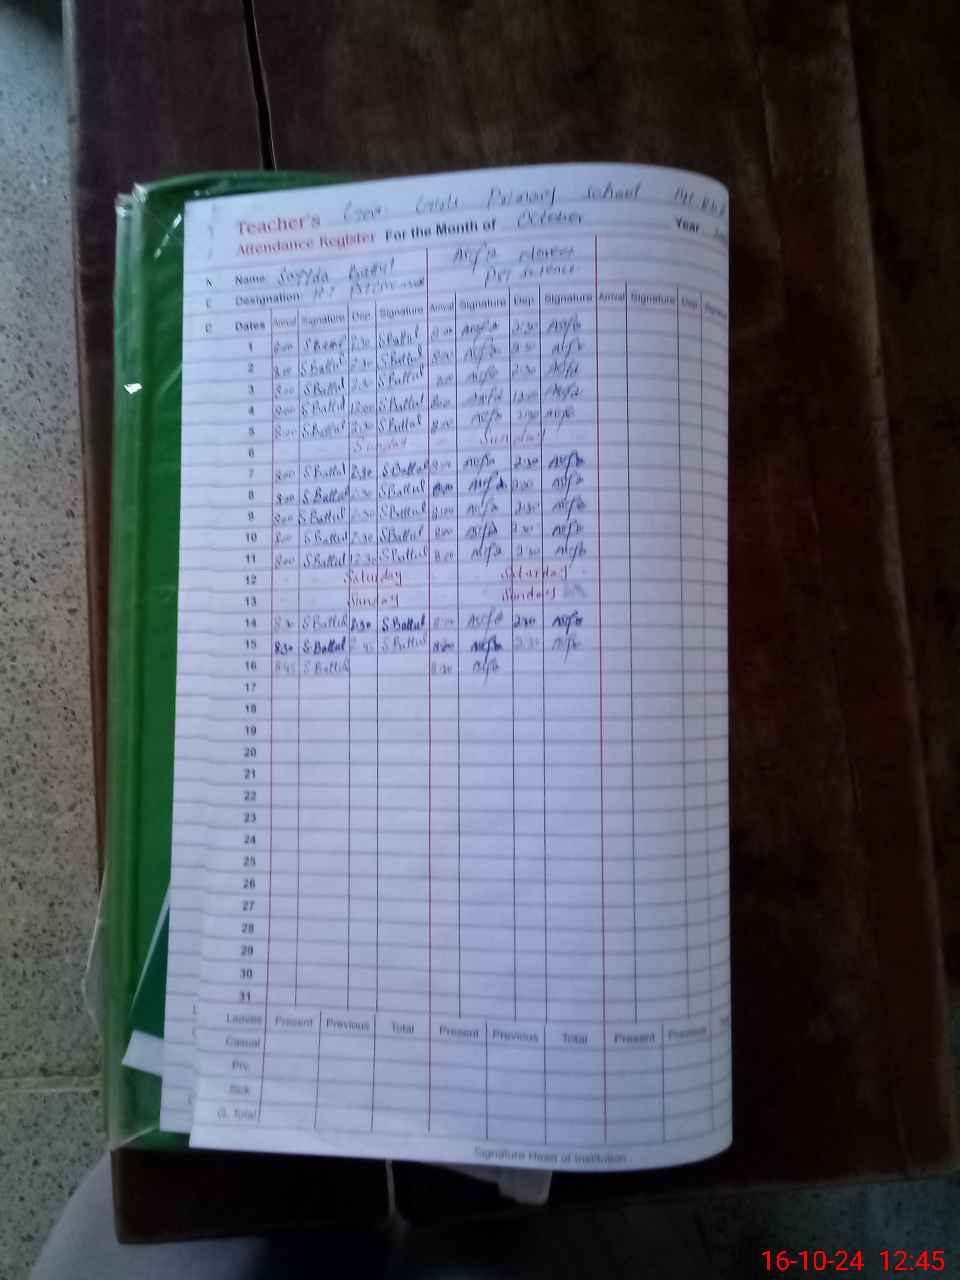 Teacher's Girls Primary School
Attendance Register For the Month of October Year
Name Sayyda Battul Asifa
Designation PST Science
Dates Arrival Signature Dep. Signature Arrival Signature Dep. Signature Arrival Signature Dep.
1 8:00 S Battul 2:30 S Battul 8:00 Asifa 2:30 Asifa
2 8:00 S Battul 2:30 S Battul 8:00 Asifa 2:30 Asifa
3 8:00 S Battul 2:30 S Battul 8:00 Asifa 2:30 Asifa
4 8:00 S Battul 12:00 S Battul 8:00 Asifa 12:00 Asifa
5 8:00 S Battul 2:30 S Battul 8:00 Asifa 2:30 Asifa
6 Sunday Sunday
7 8:00 S Battul 2:30 S Battul 8:00 Asifa 2:30 Asifa
8 8:00 S Battul 2:30 S Battul 8:00 Asifa 2:30 Asifa
9 8:00 S Battul 2:30 S Battul 8:00 Asifa 2:30 Asifa
10 8:00 S Battul 2:30 S Battul 8:00 Asifa 2:30 Asifa
11 8:00 S Battul 12:30 S Battul 8:00 Asifa Asifa
12 Saturday Saturday
13 Sunday Sunday
14 8:30 S Battul 2:30 S Battul Asifa 2:30 Asifa
15 8:30 S Battul S Battul 8:30 Asifa 2:30 Asifa
16 8:45 S Battul 8:30 Asifa
17
18
19
20
21
22
23
24
25
26
27
28
29
30
31
Leaves Present Previous Total Present Previous Total Present Previous
Casual
Prv.
Sick
G. Total
Signature Head of Institution
16-10-24 12:45